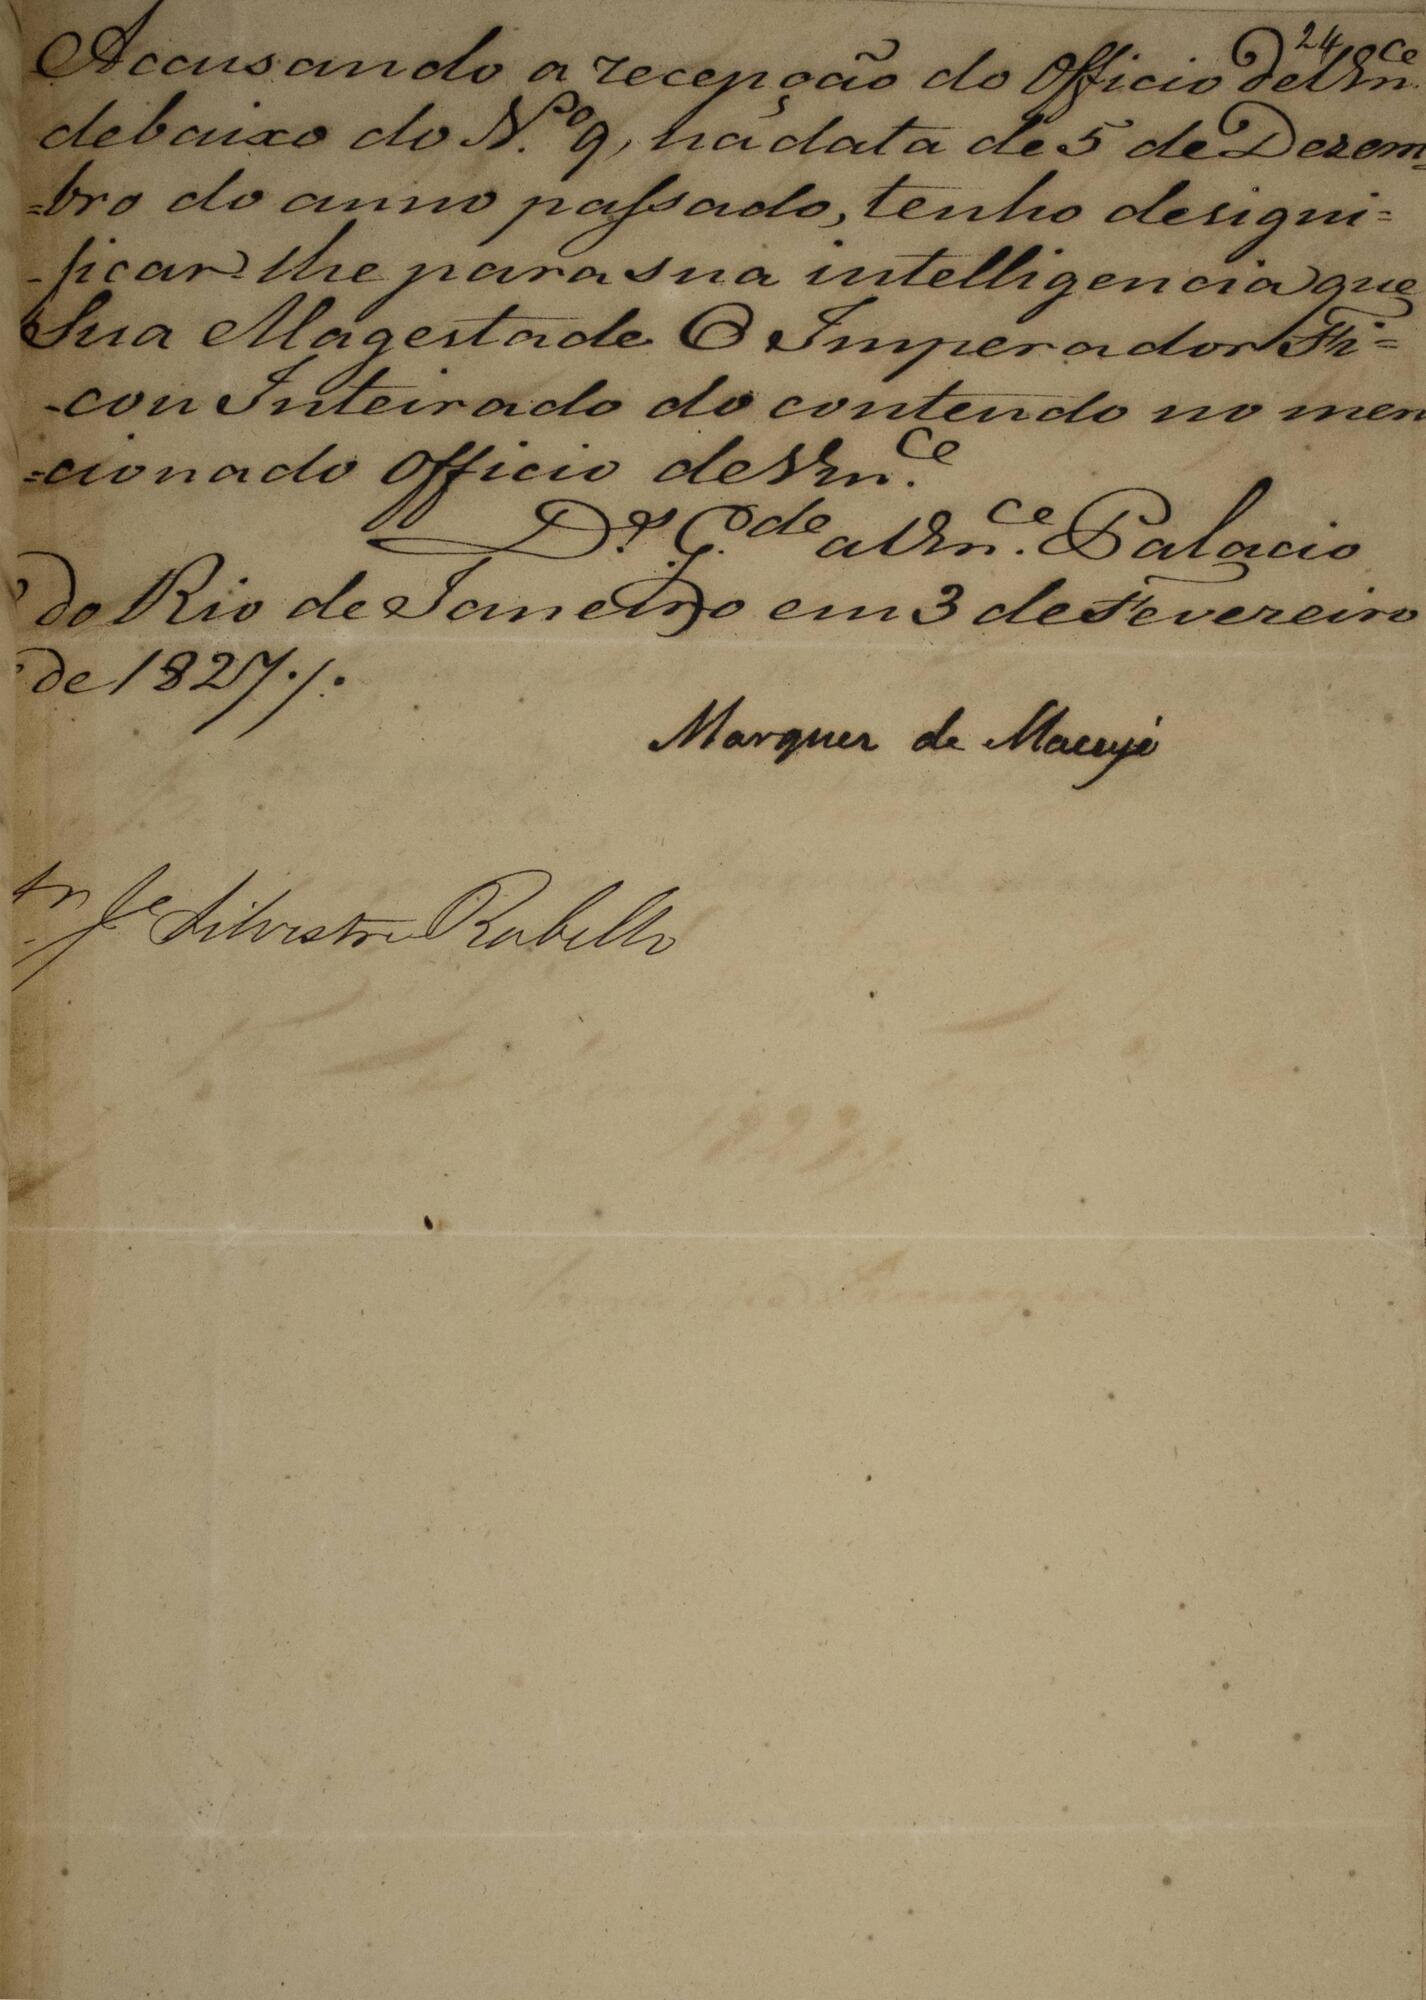 24
Accusando a recepção do Officio de Vm.ce
debaixo do N.º 9, na data de 5 de Dezem-
=bro do anno passado, tenho designi=
-ficar lhe para sua intelligencia que
Sua Magestade O Imperador Fi=
-cou Inteirado do contendo no men
=cionado Officio de Vm.ce
D.s G.de a Vm.ce Palacio
do Rio de Janeiro em 3 de Fevereiro
de 1827./.
Marquez de Maceyó
Snr Je Silvestre Rebello